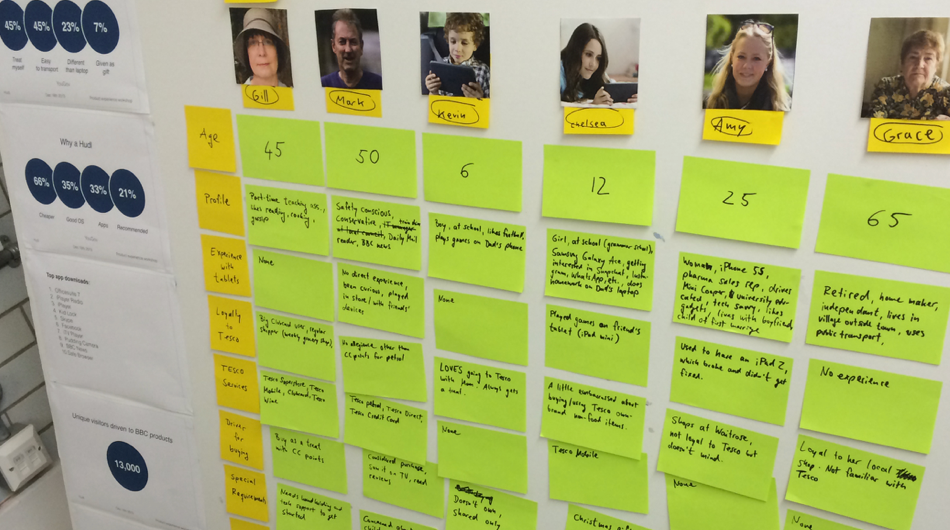 45%
45%
23%
7%
Easy
to transport
Different
than laptop
Given as
gift
Why a Hudl
66%
35%
33%
21%
Cheaper
Good OS
Apps
Recommended
Top app downloads:
Unique visitors driven to BBC products
13,000
Gill
Mark
Kevin
Chelsea
Amy
Grace
Age
45
50
6
12
25
65
Profile
Part-time teaching ass.,
likes reading, cooking,
gossip
Safety conscious,
Conservative,
Daily Mail
reader, BBC news
Boy, at school, likes football,
plays games on Dad's phone
Girl, at school (grammar school),
Samsung Galaxy Ace, getting
interested in Snapchat, Insta-
gram, WhatsApp, etc., does
homework on Dad's laptop
Woman, iPhone 5S,
pharma sales rep, drives
Mini Cooper, university edu-
cated, tech savvy, likes
gadgets, lives with boyfriend,
child of first marriage
Retired, home maker,
independent, lives in
village outside town, uses
public transport,
Experience
with
tablets
None
No direct experience,
been curious, played
in store/with friends'
devices
None
Played games on friend's
tablet (iPad mini)
Used to have an iPad 2,
which broke and didn't get
fixed.
No experience
Loyalty
to
Tesco
Big Clubcard user, regular
shopper (weekly grocery shop)
No allegiance other than
CC points for petrol
LOVES going to Tesco
with Mum. Always gets
a treat.
A little embarrassed about
buying/using Tesco own-
brand non-food items.
Shops at Waitrose,
not loyal to Tesco but
doesn't mind.
Loyal to her local
shop. Not familiar with
Tesco
TESCO
Services
Tesco Superstore, Tesco
Mobile, Clubcard, Tesco
Wine
Tesco petrol, Tesco Direct,
Tesco Credit Card
None
Tesco Mobile
None
None
Driver
for
buying
Buy as a local
with CC points
Considered purchase,
saw it on TV, read
reviews
Doesn't own,
shared only
Christmas
Special
Requirements
Needs hand holding and
tech support to get
started